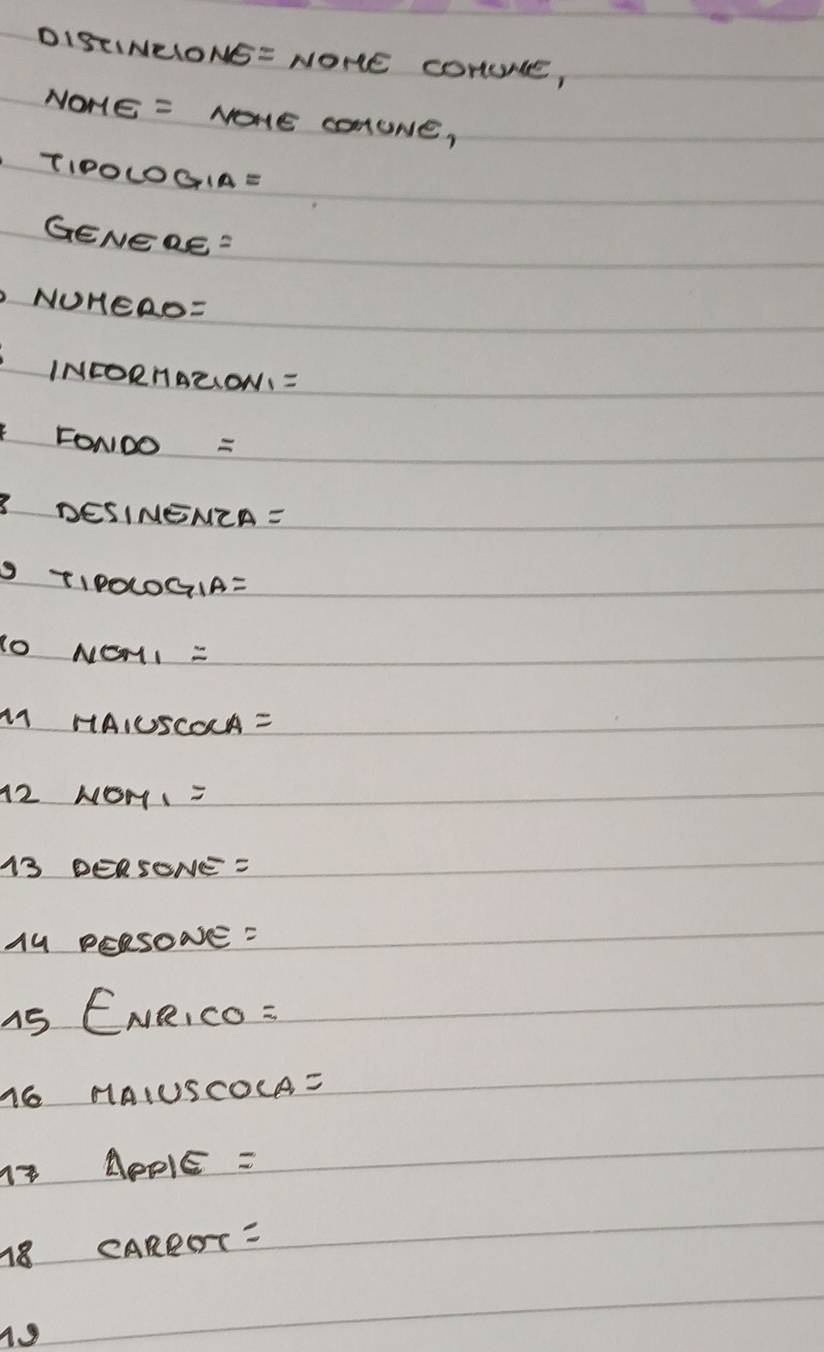 DISTINZIONE= NOME COMUNE,
NOME = NOME COMUNE,
TIPOLOGIA=
GENERE=
NUMERO=
INFORMAZIONI=
FONDO =
8 DESINENZA=
9 TIPOLOGIA=
10 NOMI =
11 MAIUSCOLA=
12 NOMI =
13 PERSONE=
14 PERSONE=
15 ENRICO=
16 MAIUSCOLA=
17 APPLE =
18 CARROT=
19